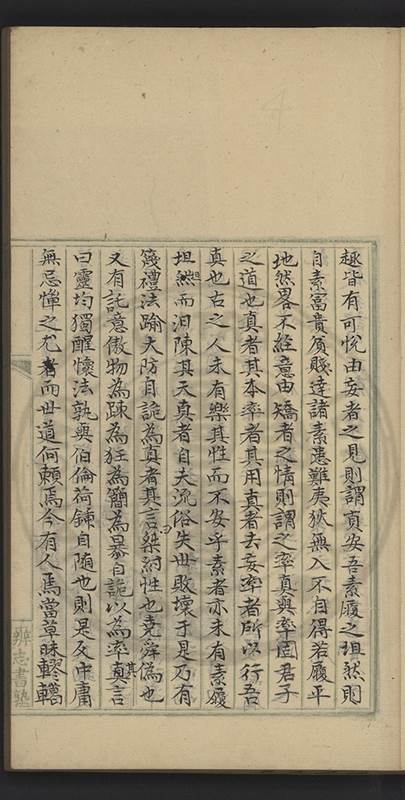 趣皆有可悅由妄者之見則謂真安吾素履之坦然則
自素富貴貧賤達諸素患難夷狄無入不自得若履平
地然畧不經意由矯者之情則謂之率真與率固君子
之道也真者其本率者其用真者去妄率者所以行吾
真也古之人未有樂其性而不安乎素者亦未有素履
坦坦然而汩陳其天真者自夫流俗失世敗壞于是乃有
籛禮法踰大防自詭為真者其言桀紂性也堯舜偽也
又有託意傲物為疎為狂為簡為暴自詭以為率其言
曰靈均獨醒懷法孰與伯倫荷鍤自隨也則是反中庸
無忌憚之尤者而世道何賴焉今有人焉當草昧轇轕
辨志書塾